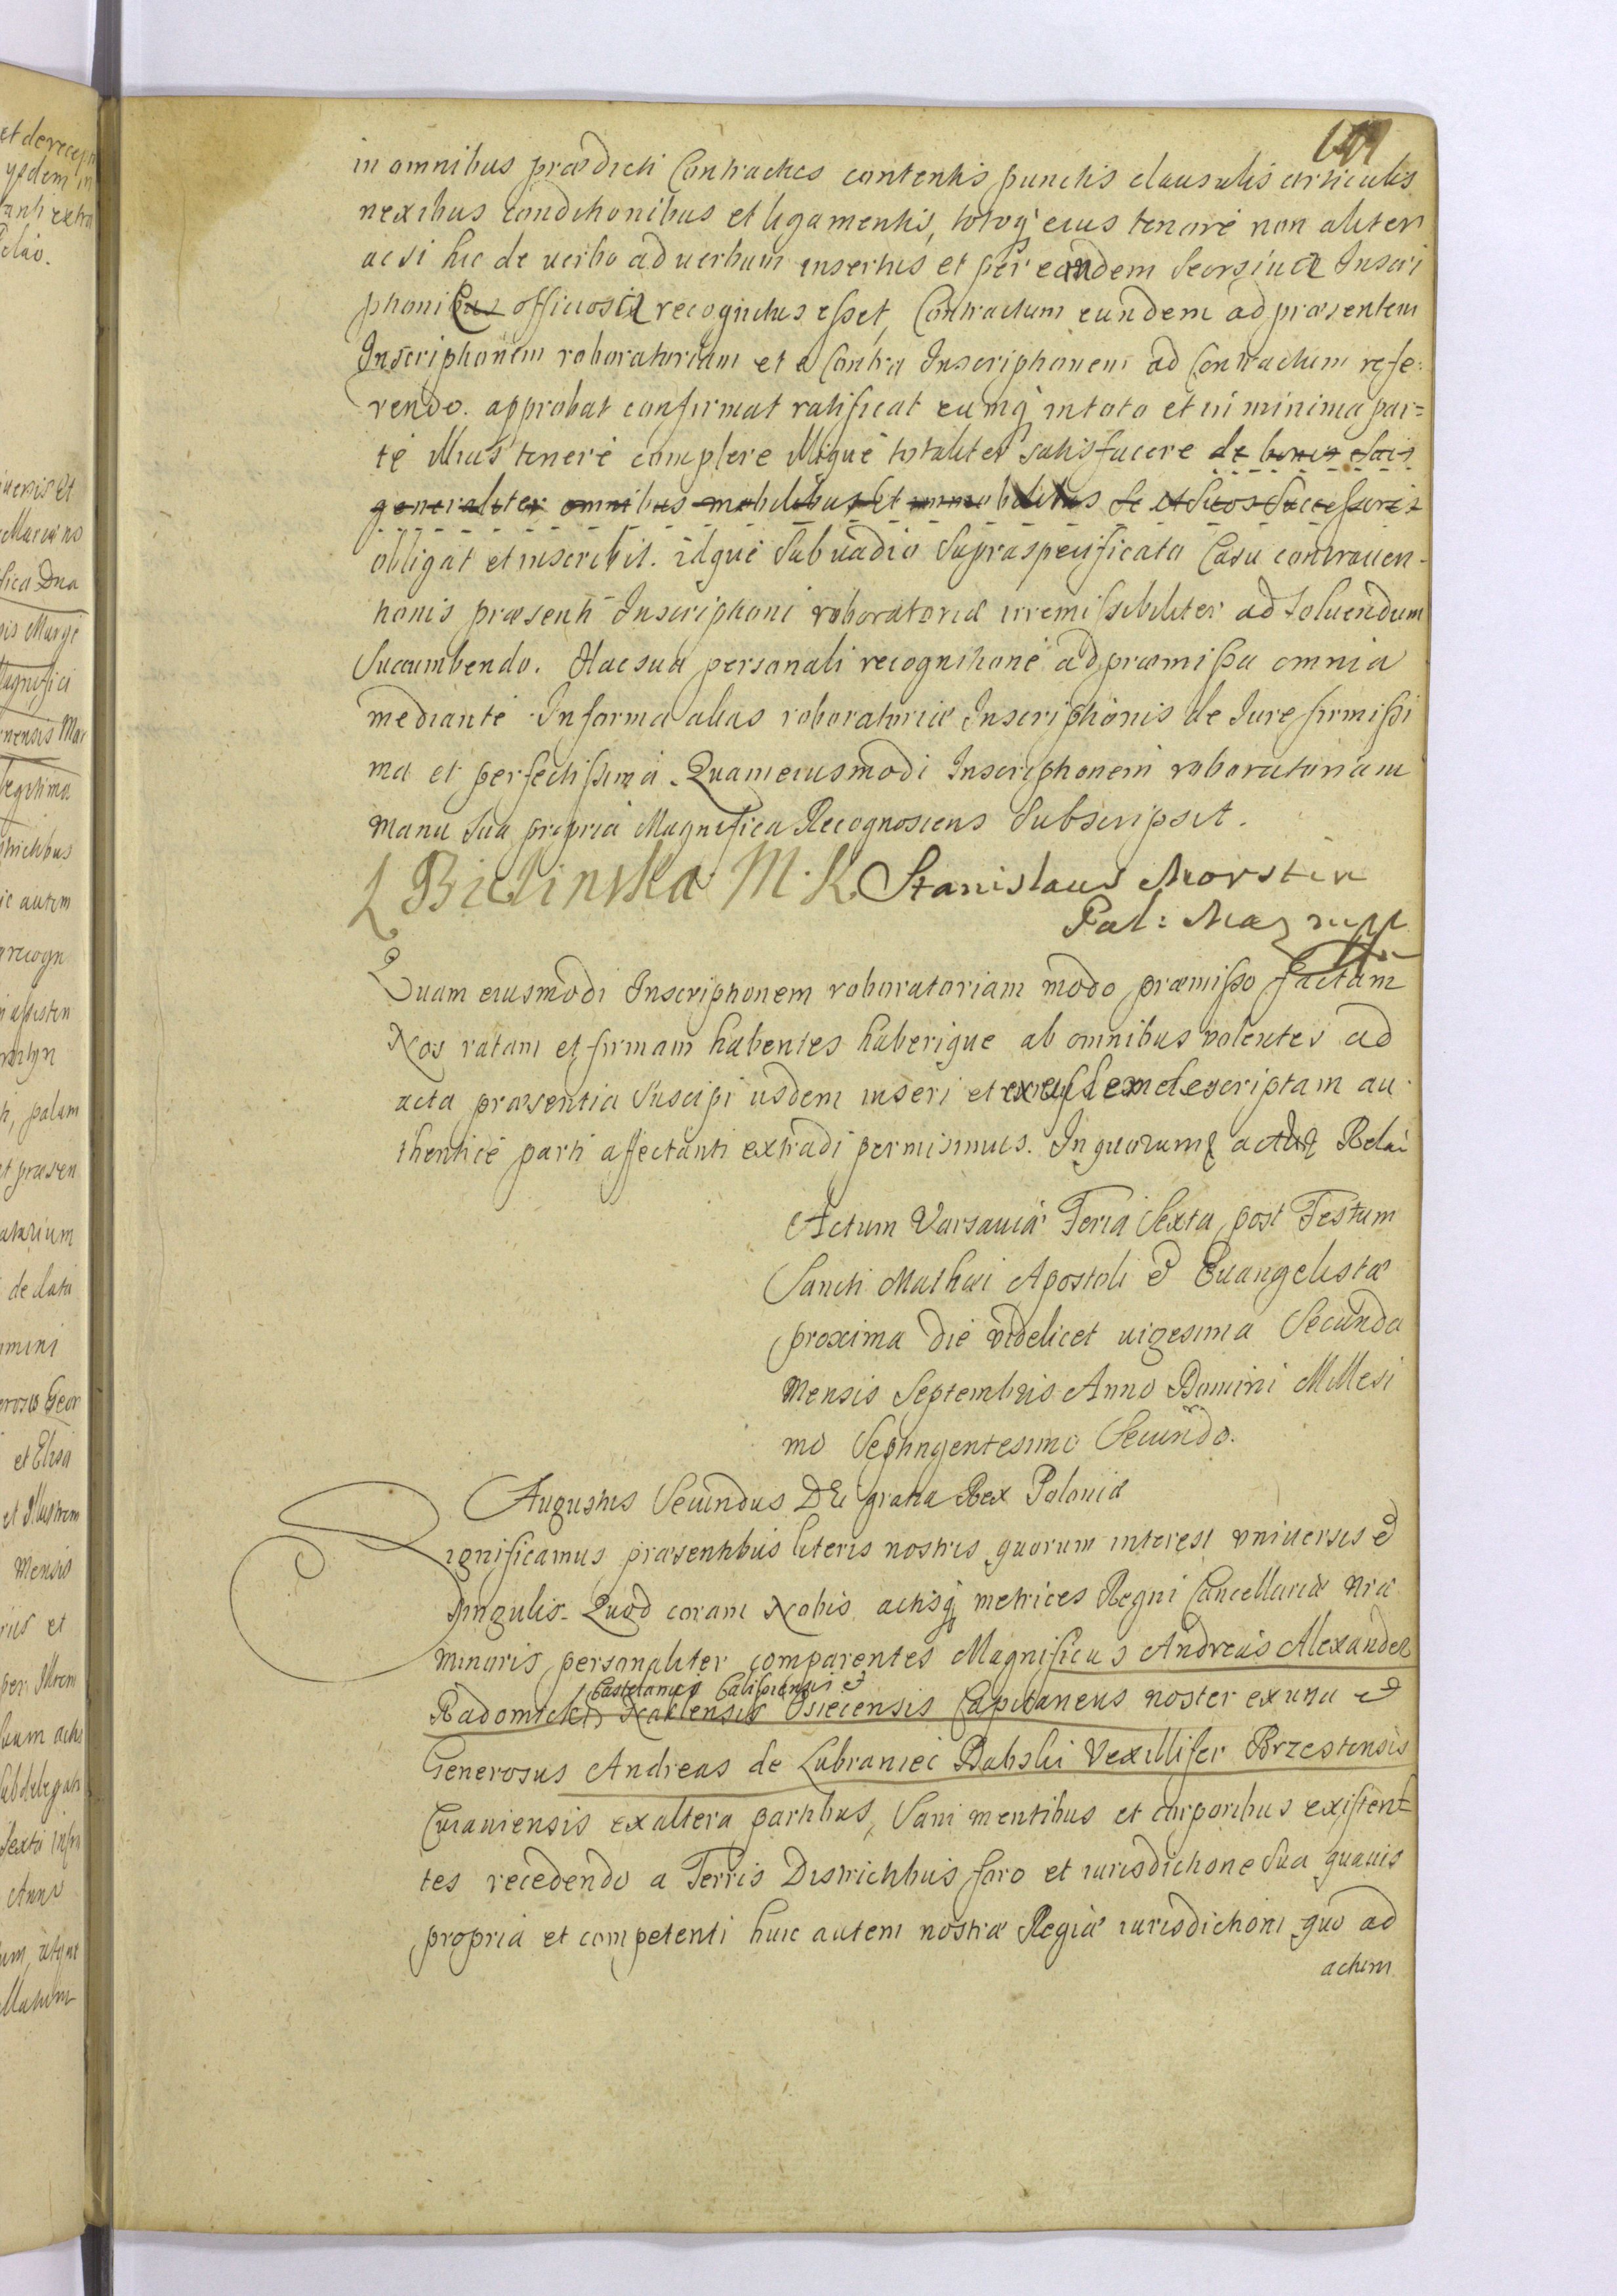 in omnibus prædicti Contractus contentis punctis clausulis articulis
nexibus conditionibus et ligamentis, totoq eius tenore non aliter
ac si hic de verbo ad verbum insertus et per eandem Seorsiua Inscri
ptioni officiosa recognitus esset, Contractum eundem ad præsentem
Inscriptionem roboratoriam et e Contra Inscriptionem ad Contractum refe:
rendo. approbat confirmat ratificat eumq in toto et in minima par=
te illius tenere complere illique totaliter satisfacere de bonis suis
generaliter omnibus mobilibus et immobilibus se et suos Successores
obligat et inscribit. idque Sub vadio Supraspecificato Casu contrauen-
tionis præsenti Inscriptioni roboratoriæ irremissibiliter ad Soluendum
Succumbendo. Hac sua personali recognitione ad præmissa omnia
mediante. In forma alias roboratoriæ Inscriptionis de Iure firmissi
ma et perfectissima. Quam eiusmodi Inscriptionem roboratoriam
manu Sua propria Magnifica Recognoscens Subscripsit.
L Bielinska M. K. Stanislaus Morstin
Pal: Maz mpp
Quam eiusmodi Inscriptionem roboratoriam modo præmisso factam
Nos ratam et firmam habentes haberique ab omnibus volentes ad
acta præsentia Suscipi iisdem inseri et ex descriptam au
thentice parti affectanti extradi permisimus. In quorum actuq Relaī
Actum Varsauiæ Feria Sexta post Festum
Sancti Mathæi Apostoli & Euangelistæ
proxima die videlicet uigesima Secunda
Mensis Septembris Anno Domini Millesi
mo Septingentesimo Secundo.
Augustus Secundus DEi gratia Rex Poloniæ
Significamus præsentibus literis nostris quorum interest vniuersis &
Singulis. Quod coram Nobis actisq metrices Regni Cancellariæ Nræ
minoris personaliter comparentes Magnificus Andreas Alexander
Castelanus Calisiensis &
Radomicki Naklensis Osiecensis Capitaneus noster ex una &
Generosus Andreas de Lubraniec Dabski Vexillifer Brzestensis
Cuiauiensis ex altera partibus, Sani mentibus et corporibus existent
tes recedendo a Terris Districtibus foro et iurisdictione Sua quauis
propria et competenti huic autem nostræ Regiæ iurisdictioni quo ad
actum